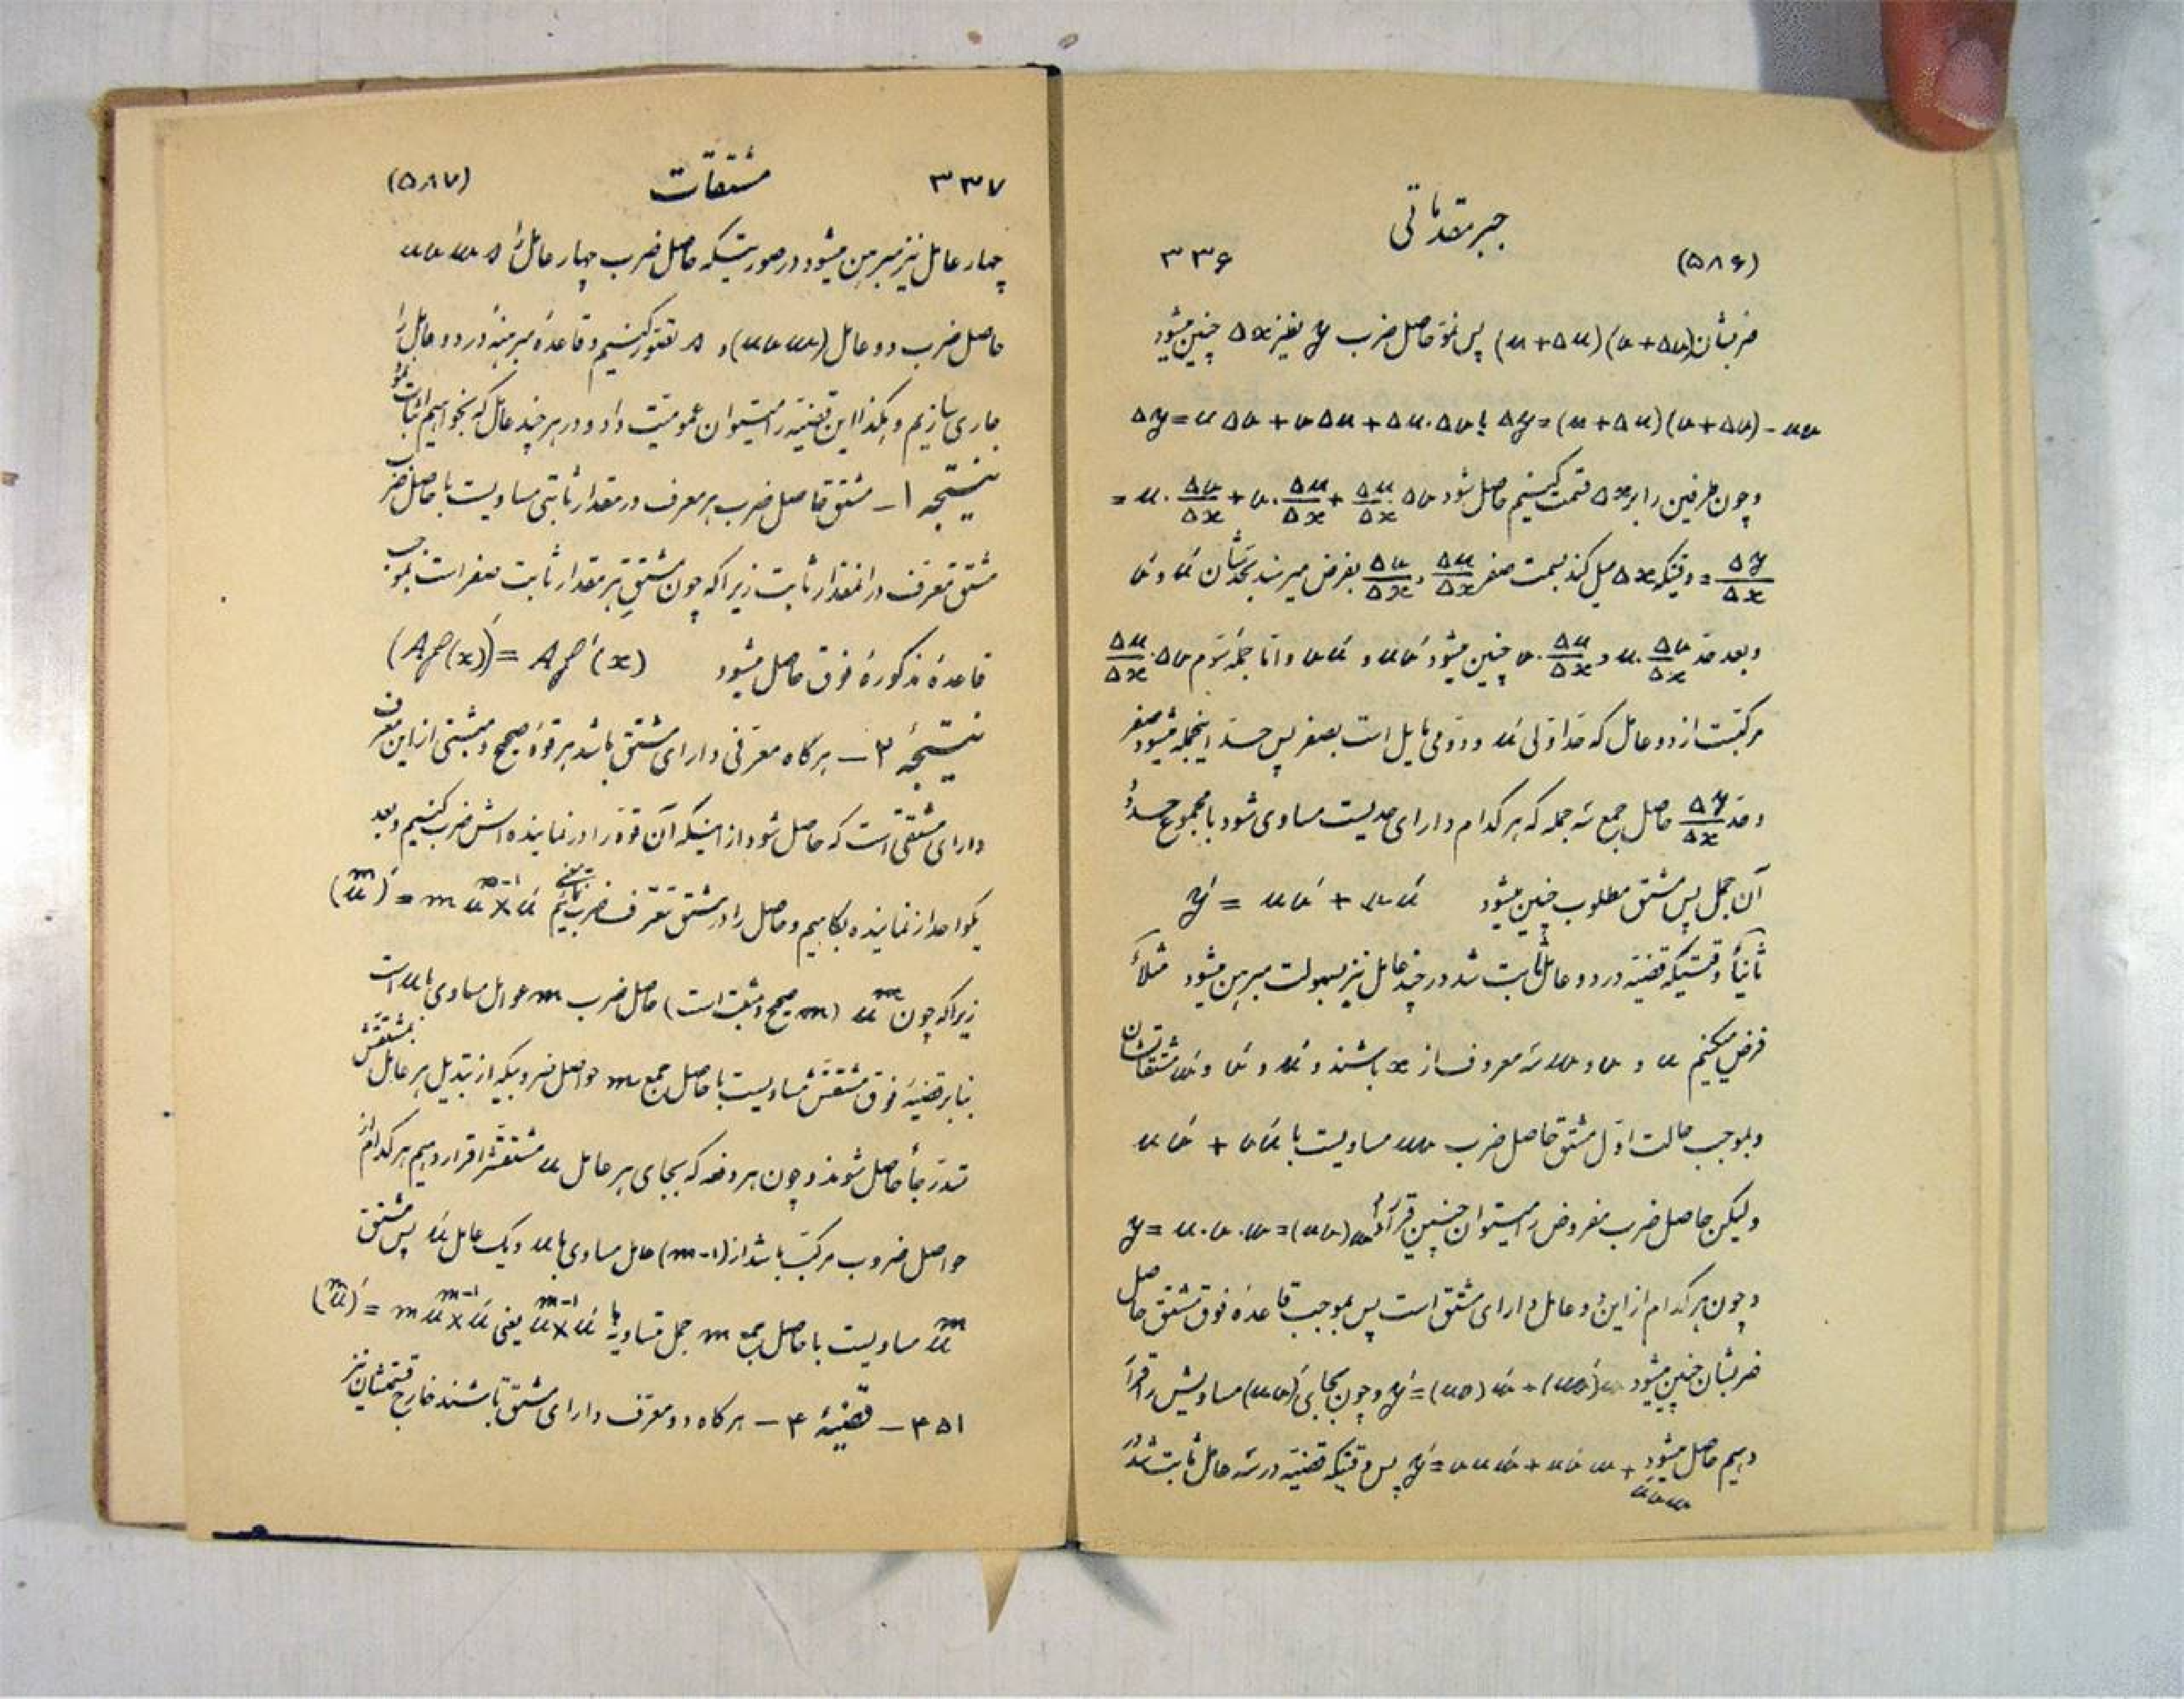 جبر مقدماتی
(۵۸۶) ۳۳۶
ضربشان (u+Δu)(v+Δv) پس نمو حاصل ضرب y بغیر Δx چنین میشود
Δy = u Δv + v Δu + Δu.Δv یا Δy = (u+Δu)(v+Δv) - uv
و چون طرفین را بر Δx قسمت کنیم حاصل شود = u.Δv/Δx + v.Δu/Δx + Δu/Δx.Δv
Δy/Δx = وقتیکه Δx میل کند بسمت صفر Δu/Δx و Δv/Δx بفرض میرسند بحدشان u′ و v′
و بعد حد u.Δv/Δx و v.Δu/Δx چنین میشود uv′ و vu′ و اما جمله سوم Δu/Δx.Δv
مرکبست از دو عامل که حد اولی u′ و دومی مایل است بصفر پس حد اینجمله میشود صفر
و حد Δy/Δx حاصل جمع سه جمله که هر کدام دارای حدیست مساوی شود با مجموع حدود
آن جمل پس مشتق مطلوب چنین میشود y′ = uv′ + vu′
ثانیاً وقتیکه قضیه در دو عامل ثابت شد در چند عامل نیز بسهولت مبرهن میشود مثلاً
فرض میکنیم u و v و w سه معروف از x باشند و u′ و v′ و w′ مشتقاتشان
و بموجب حالت اول مشتق حاصل ضرب uv مساویست با uv′ + vu′
ولیکن حاصل ضرب مفروض را میتوان چنین قرار داد y = u.v.w = (uv)w
و چون هر کدام از این دو عامل دارای مشتق است پس بموجب قاعده فوق مشتق حاصل
ضربشان چنین میشود y′ = (uv)w′ + (uv)′w و چون بجای (uv)′ مساویش را قرار
دهیم حاصل میشود y′ = vuw′ + uv′w + u′vw پس وقتیکه قضیه در سه عامل ثابت شد در
۳۳۷ مشتقات (۵۸۷)
چهار عامل نیز مبرهن میشود در صورتیکه حاصل ضرب چهار عامل را uvws
حاصل ضرب دو عامل (uvw) و s تصور کنیم و قاعده مبرهنه در دو عامل را
جاری سازیم و هکذا این قضیه را میتوان عمومیت داد و در هر چند عامل که بخواهیم اثبات نمود
نتیجه ۱ – مشتق حاصل ضرب هر معرف در مقدار ثابتی مساویست با حاصل ضرب
مشتق معرف در آنمقدار ثابت زیرا که چون مشتق هر مقدار ثابت صفر است بموجب
قاعدهٔ مذکورهٔ فوق حاصل میشود (Af(x))′ = Af′(x)
نتیجهٔ ۲ – هرگاه معرفی دارای مشتق باشد هر قوهٔ صحیح و مثبتی از این معرف
دارای مشتقی است که حاصل شود از اینکه آن قوه را در نماینده اش ضرب کنیم و بعد
یکواحد از نماینده بکاهیم و حاصل را در مشتق معرف ضرب نمائیم یعنی (uᵐ)′ = m uᵐ⁻¹ × u′
زیرا که چون uᵐ (m صحیح و مثبت است) حاصل ضرب m عوامل مساوی با u است
بنابر قضیهٔ فوق مشتقش مساویست با حاصل جمع m حواصل ضروبیکه از تبدیل هر عامل بمشتقش
تدرجاً حاصل شوند و چون هر دفعه که بجای هر عامل u مشتقش را قرار دهیم هر کدام از
حواصل ضروب مرکب باشد از (m-۱) عامل مساوی با u و یک عامل u′ پس مشتق
uᵐ مساویست با حاصل جمع m جمل متساویه با uᵐ⁻¹ × u′ یعنی (uᵐ)′ = m uᵐ⁻¹ × u′
۴۵۱ – قضیهٔ ۴ – هرگاه دو معرف دارای مشتق باشند خارج قسمتشان نیز